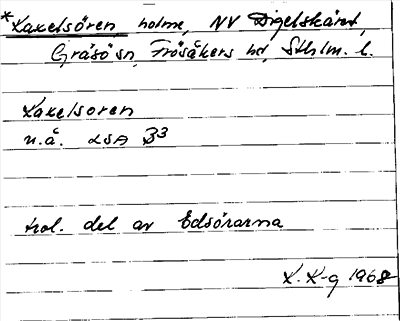 *Kaxelsören holme, NV Digelskäret,
Gräsö sn, Frösåkers hd, Sthlm. l.
Kaxelsoren
u.å. LSA B3
trol. del av Edsörarna
K. K-g 1968